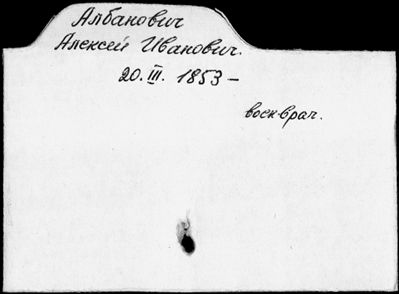 Албанович
Алексей Иванович.
20.III. 1853 –
воен-врач.